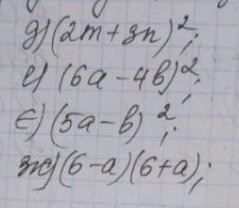 д) (2m+3n)²;
е) (6a-4b)²;
є) (5a-b)²;
ж) (6-a)(6+a);